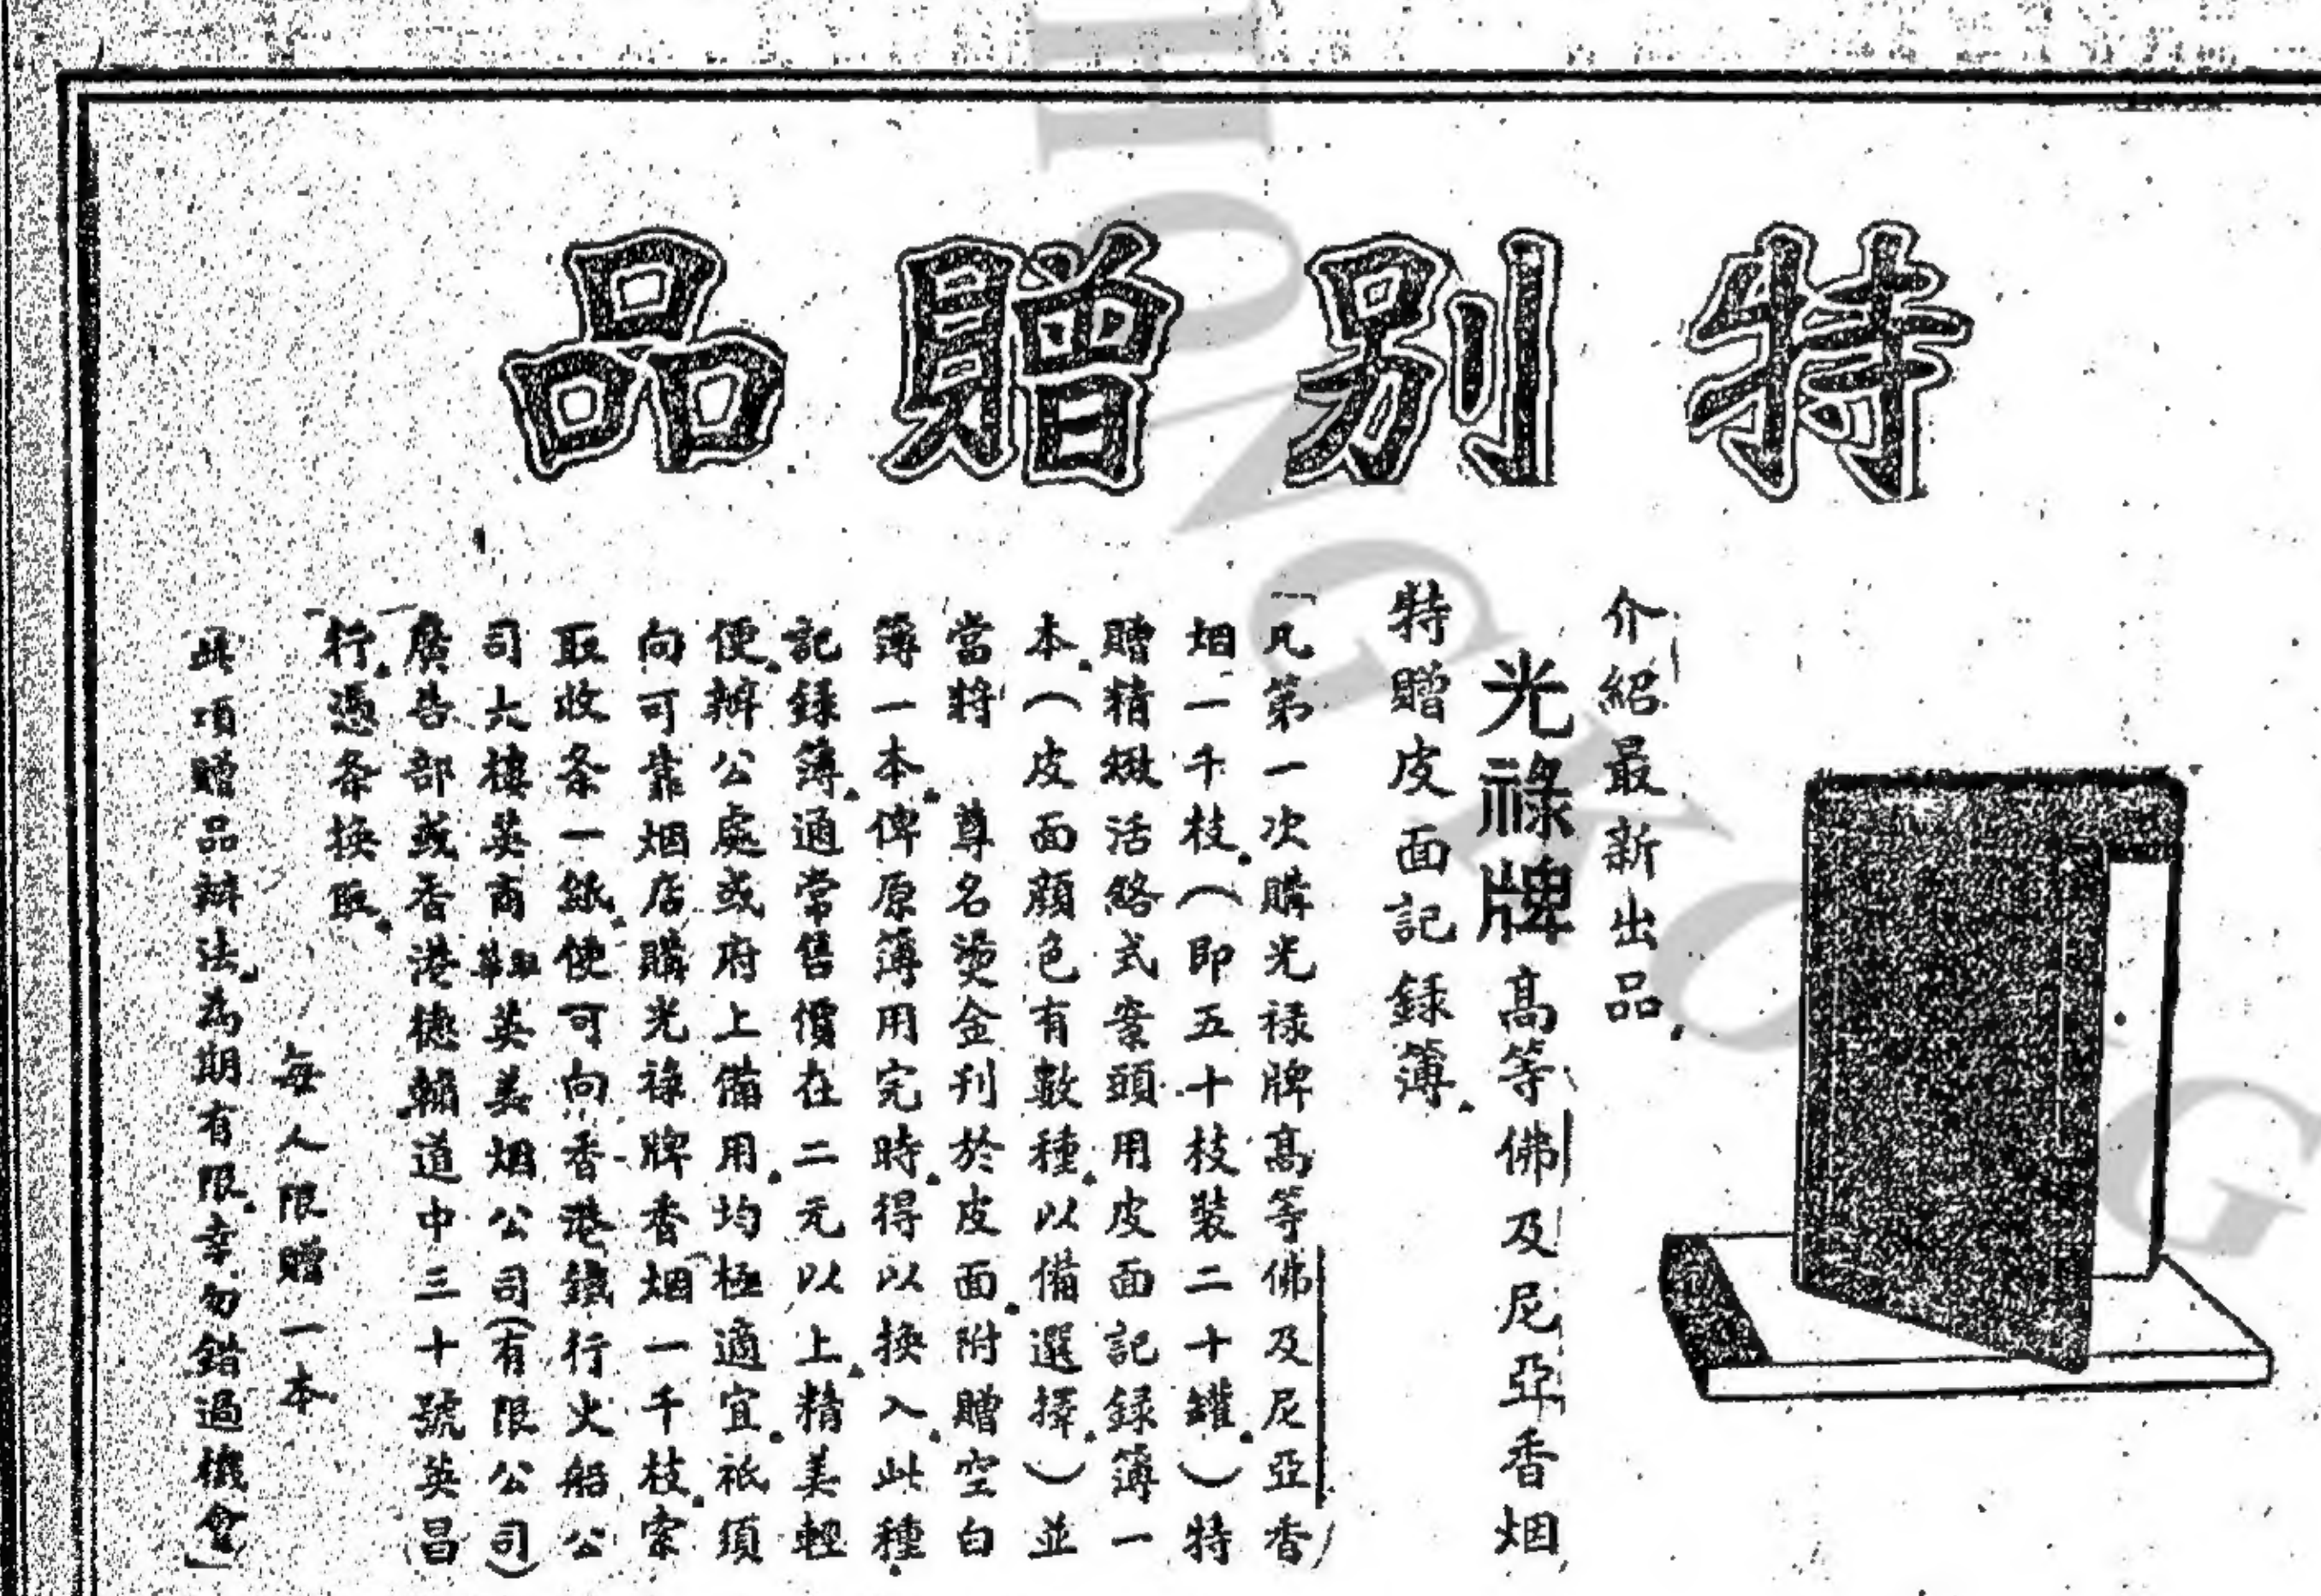 特別贈品
介紹最新出品
光祿牌高等佛及尼亞香烟
特贈皮面記錄簿
「凡第一次購光祿牌高等佛及尼亞香
烟一千枝(即五十枝裝二十罐)特
贈精緻活絡式案頭用皮面記錄簿一
本(皮面顏色有數種以備選擇)並
當將 尊名燙金刊於皮面附贈空白
簿一本俾原簿用完時得以換入此種
記錄簿通常售價在二元以上精美輕
便辦公處或府上備用均極適宜祇須
向可靠烟店購光祿牌香烟一千枝索
取收条一紙便可向香港鐵行火船公
司六樓英商駐華英美烟公司(有限公司)
廣告部或香港德輔道中三十號英昌
行憑条換取
每人限贈一本
此項贈品辦法為期有限幸勿錯過機會」
HONG KONG